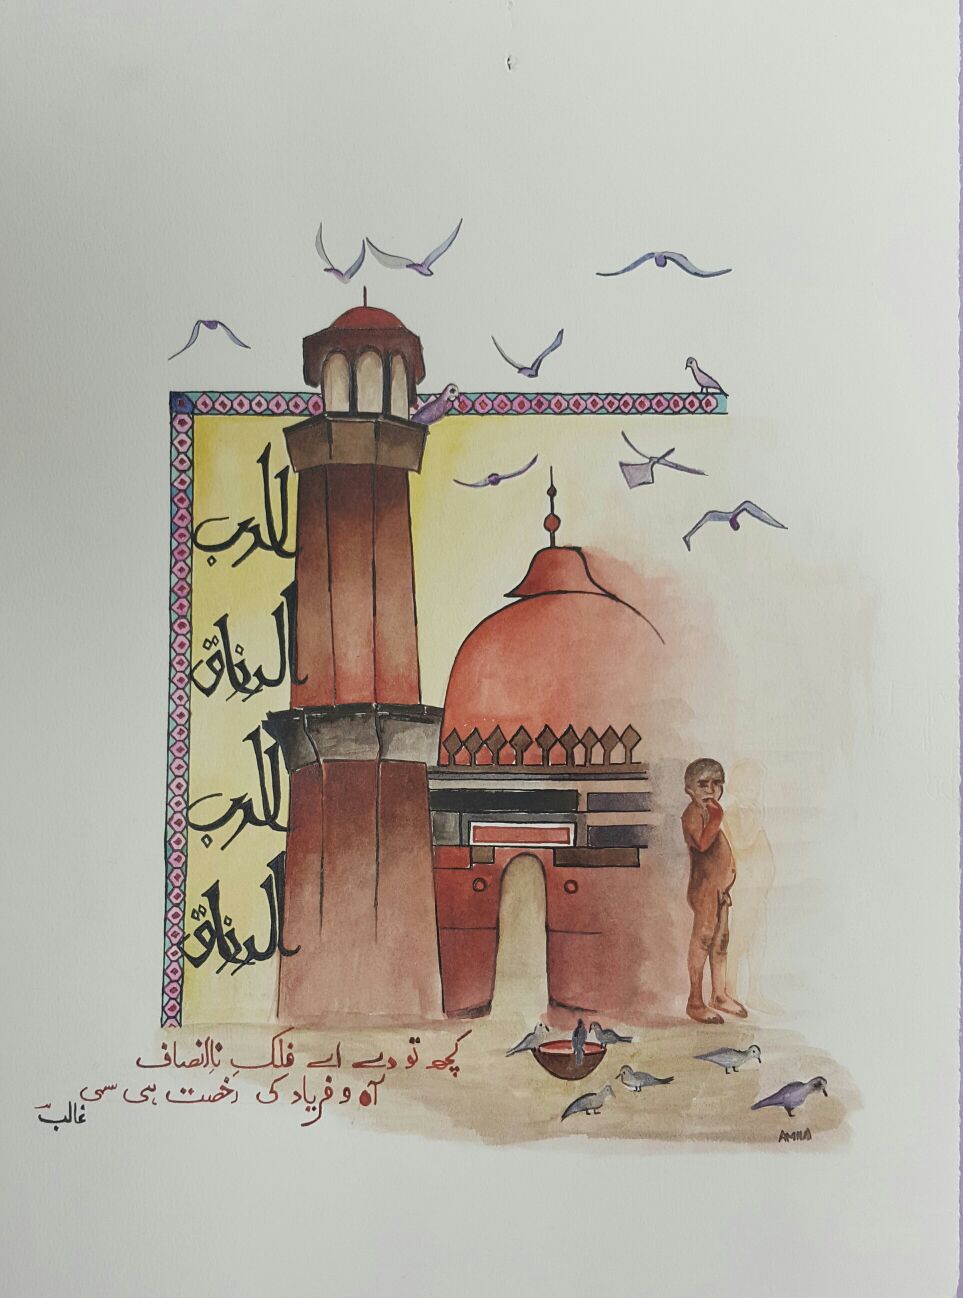 الرب
الرزاق
الرب
الرزاق
کچھ تو دے اے فلکِ ناانصاف
آہ و فریاد کی رخصت ہی سہی
غالبؔ